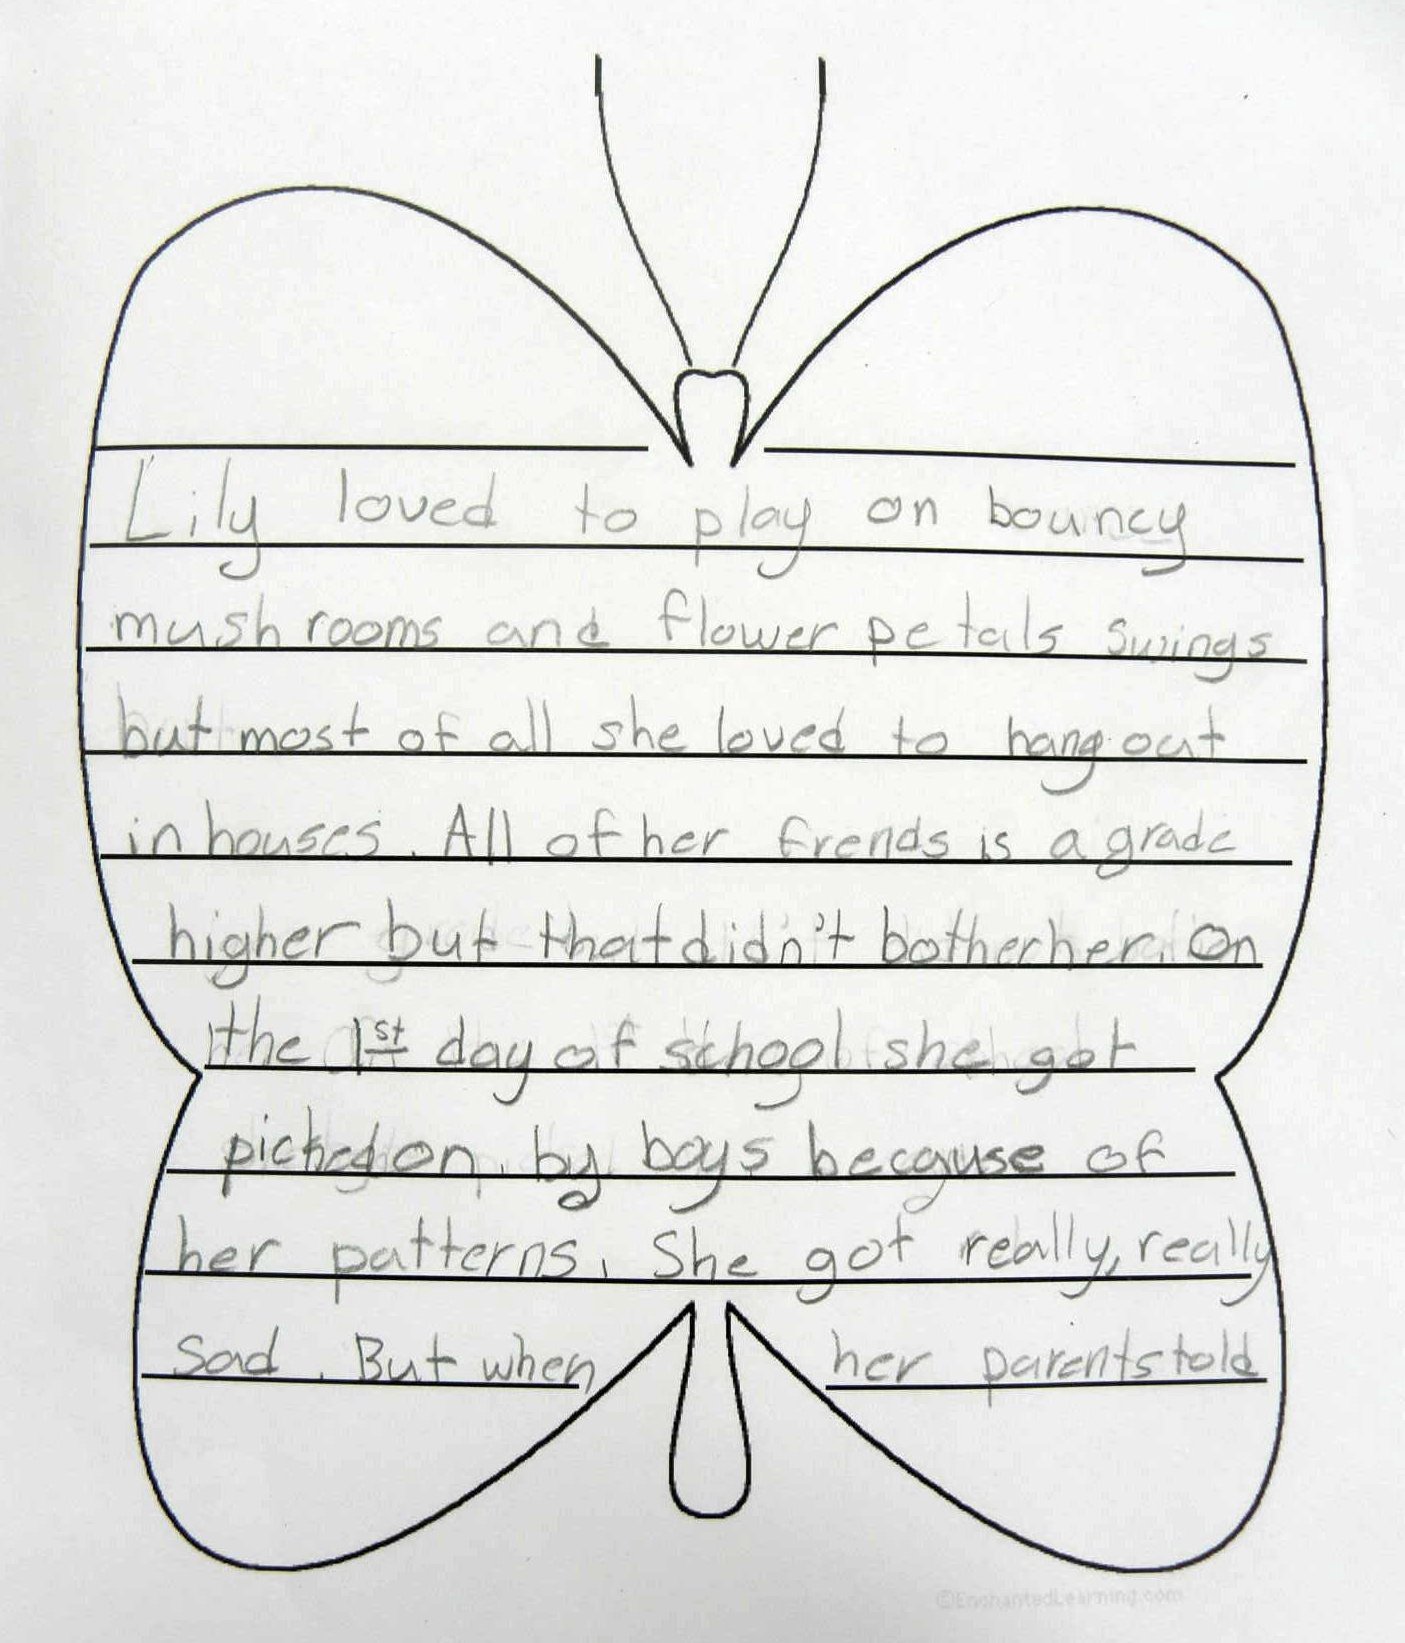 Lily loved to play on bouncy
mushrooms and flower petals swings
but most of all she loved to hang out
in houses. All of her frends is a grade
higher but that didn't bother her. On
the 1st day of school she got
picked on by boys because of
her patterns. She got really, really
sad. But when her parents told
©EnchantedLearning.com